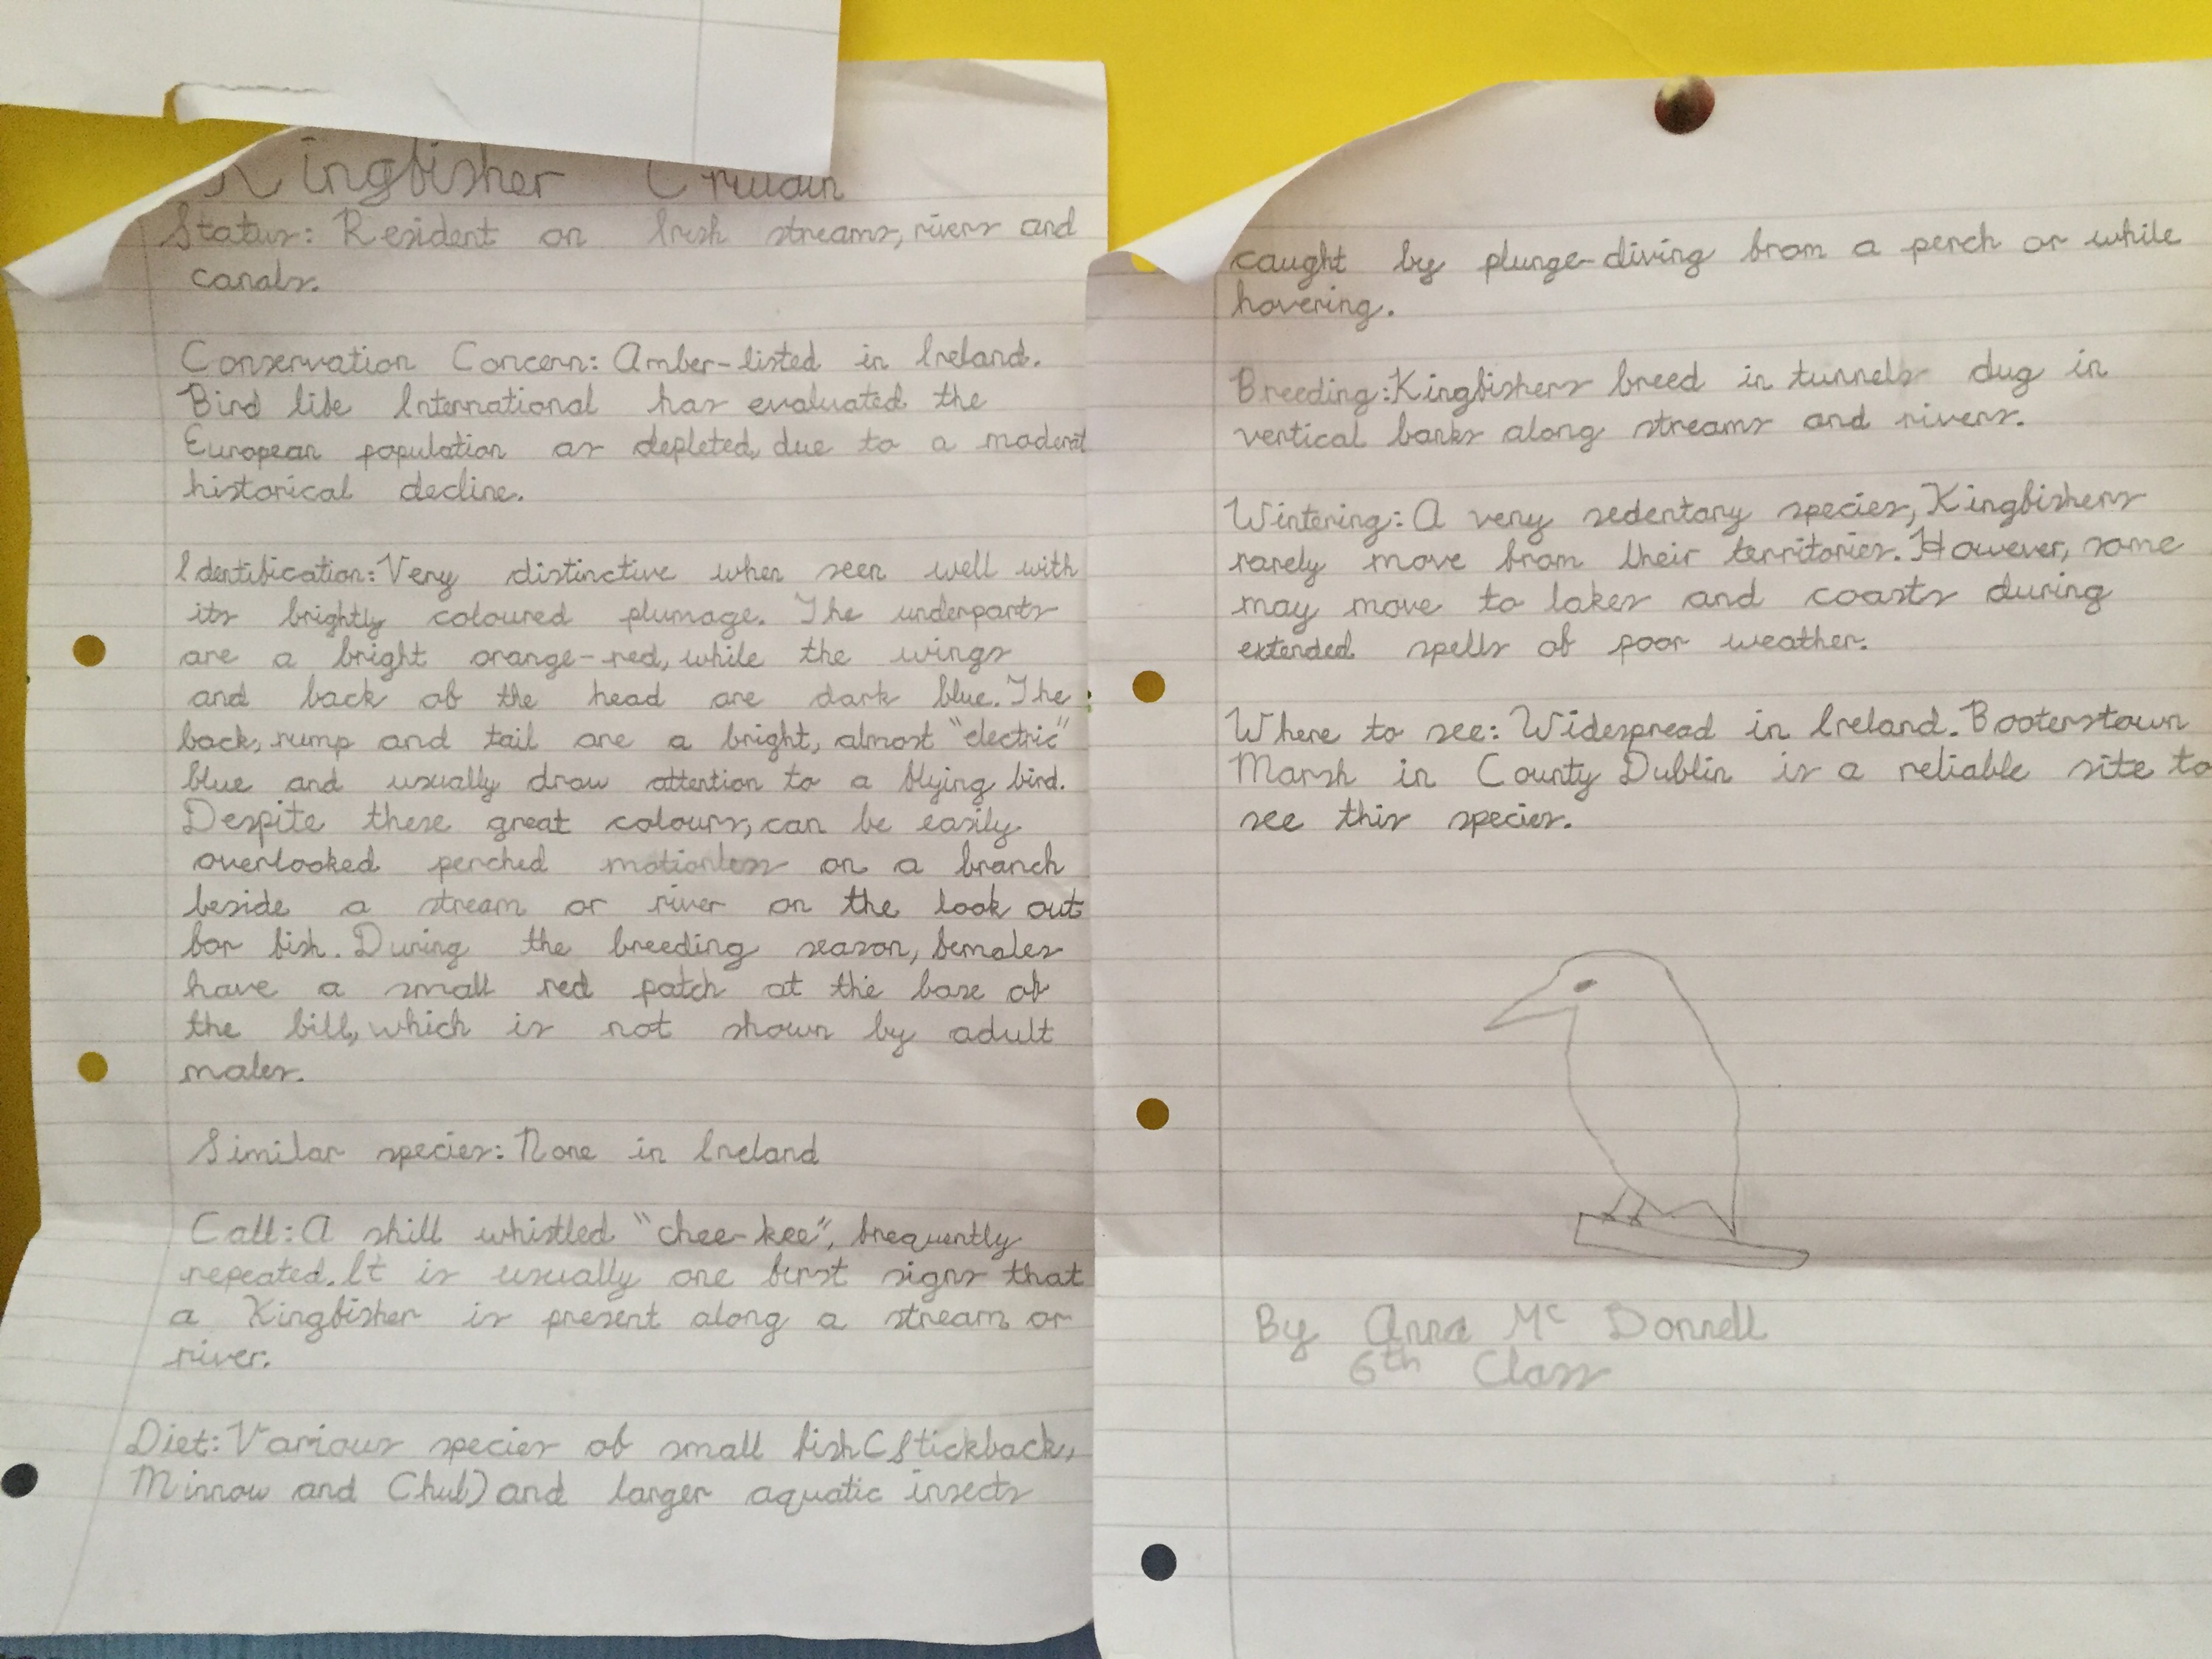 Kingfisher Cruidín
Status: Resident on Irish streams, rivers and
canals.
Conservation Concern: Amber-listed in Ireland.
Bird life International has evaluated the
European population as depleted, due to a moderat
historical decline.
Identification: Very distinctive when seen well with
its brightly coloured plumage. The underparts
are a bright orange-red, while the wings
and back of the head are dark blue. The
back, rump and tail are a bright, almost "electric"
blue and usually draw attention to a flying bird.
Despite these great colours, can be easily
overlooked perched motionless on a branch
beside a stream or river on the look out
for fish. During the breeding season, females
have a small red patch at the base of
the bill, which is not shown by adult
males.
Similar species: None in Ireland
Call: A shill whistled "chee-kee", frequently
repeated. It is usually one first signs that
a Kingfisher is present along a stream or
river.
Diet: Various species of small fish (Stickback,
Minnow and Chub) and larger aquatic insects
caught by plunge-diving from a perch or while
hovering.
Breeding: Kingfishers breed in tunnels dug in
vertical banks along streams and rivers.
Wintering: A very sedentary species, Kingfishers
rarely move from their territories. However, some
may move to lakes and coasts during
extended spells of poor weather.
Where to see: Widespread in Ireland. Booterstown
Marsh in County Dublin is a reliable site to
see this species.
By Anna Mc Donnell
6th Class